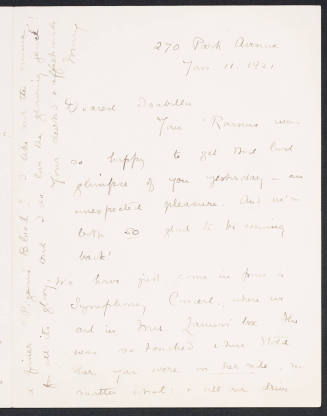 270 Park Avenue
Jan. 11. 1921
Dearest Isabella
Your "Ramus was
so happy to get that
glimpse of you yesterday – an
unexpected pleasure. And we're
both so glad to be coming
back!
We have just come in from a
Symphony Concert, where we
sat in Mrs. box. She
was so touched when I told
her you were on her side, no
matter what & all our
a finer "Pagani Block"? I like not the
for all its glory and I so love the
Your devoted & affectionate
Mary